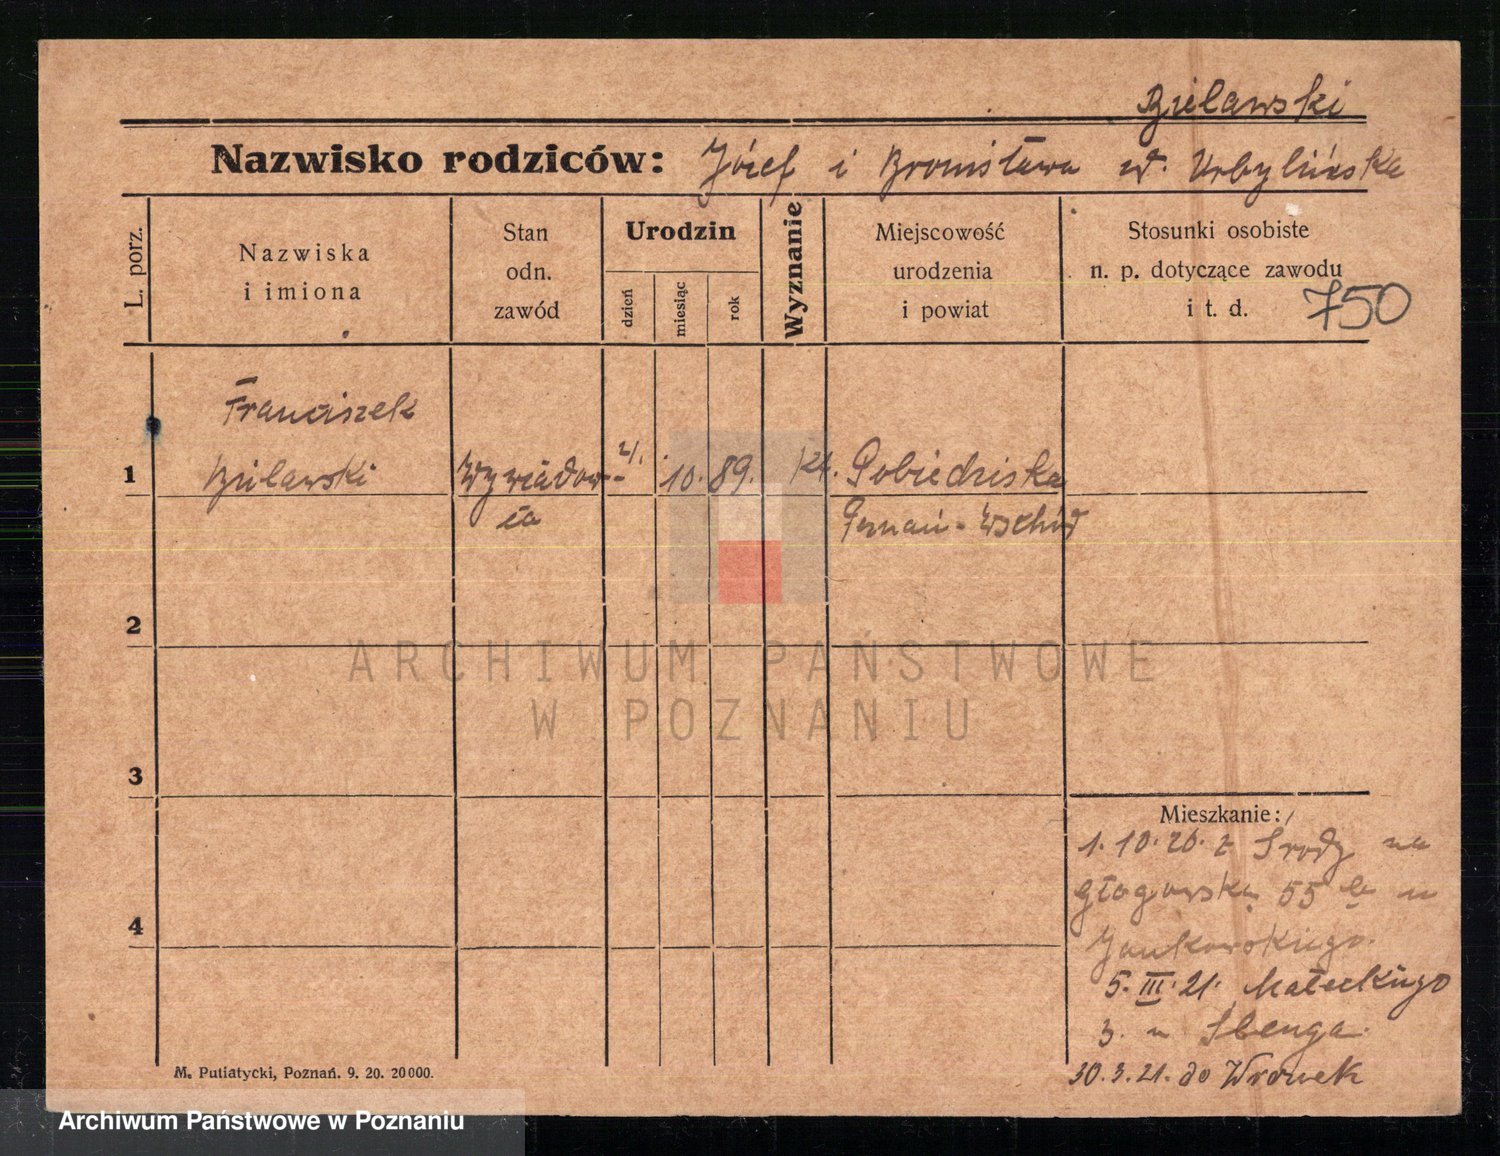 Bielawski
Nazwisko rodziców: Józef i Bronisława
L. porz.
Nazwiska
i imiona
Stan
odn.
zawód
Urodzin
dzień
miesiąc
rok
Wyznanie
Miejscowość
urodzenia
i powiat
Stosunki osobiste
n. p. dotyczące zawodu
i t. d.
750
Franciszek
1 Bielawski Wywiadow- 21. 10. 89. kt. Pobiedziska
ca Poznań-Wschód
2
3
4
Mieszkanie:
1. 10. 20. z Środy na
Głogowską 55 u
Jankowskiego.
5. III. 21. Małeckiego
3. u
30. 3. 21. do Wronek
M. Putiatycki, Poznań. 9. 20. 20000.
ARCHIWUM PAŃSTWOWE
W POZNANIU
Archiwum Państwowe w Poznaniu